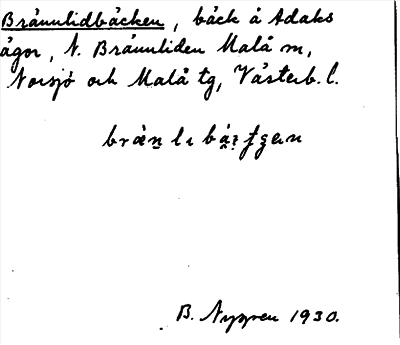 Brännlidbäcken, bäck å Adaks
ägor, N. Brännliden Malå sn,
Norsjö och Malå tg, Västerb. l.
B. Nygren 1930.